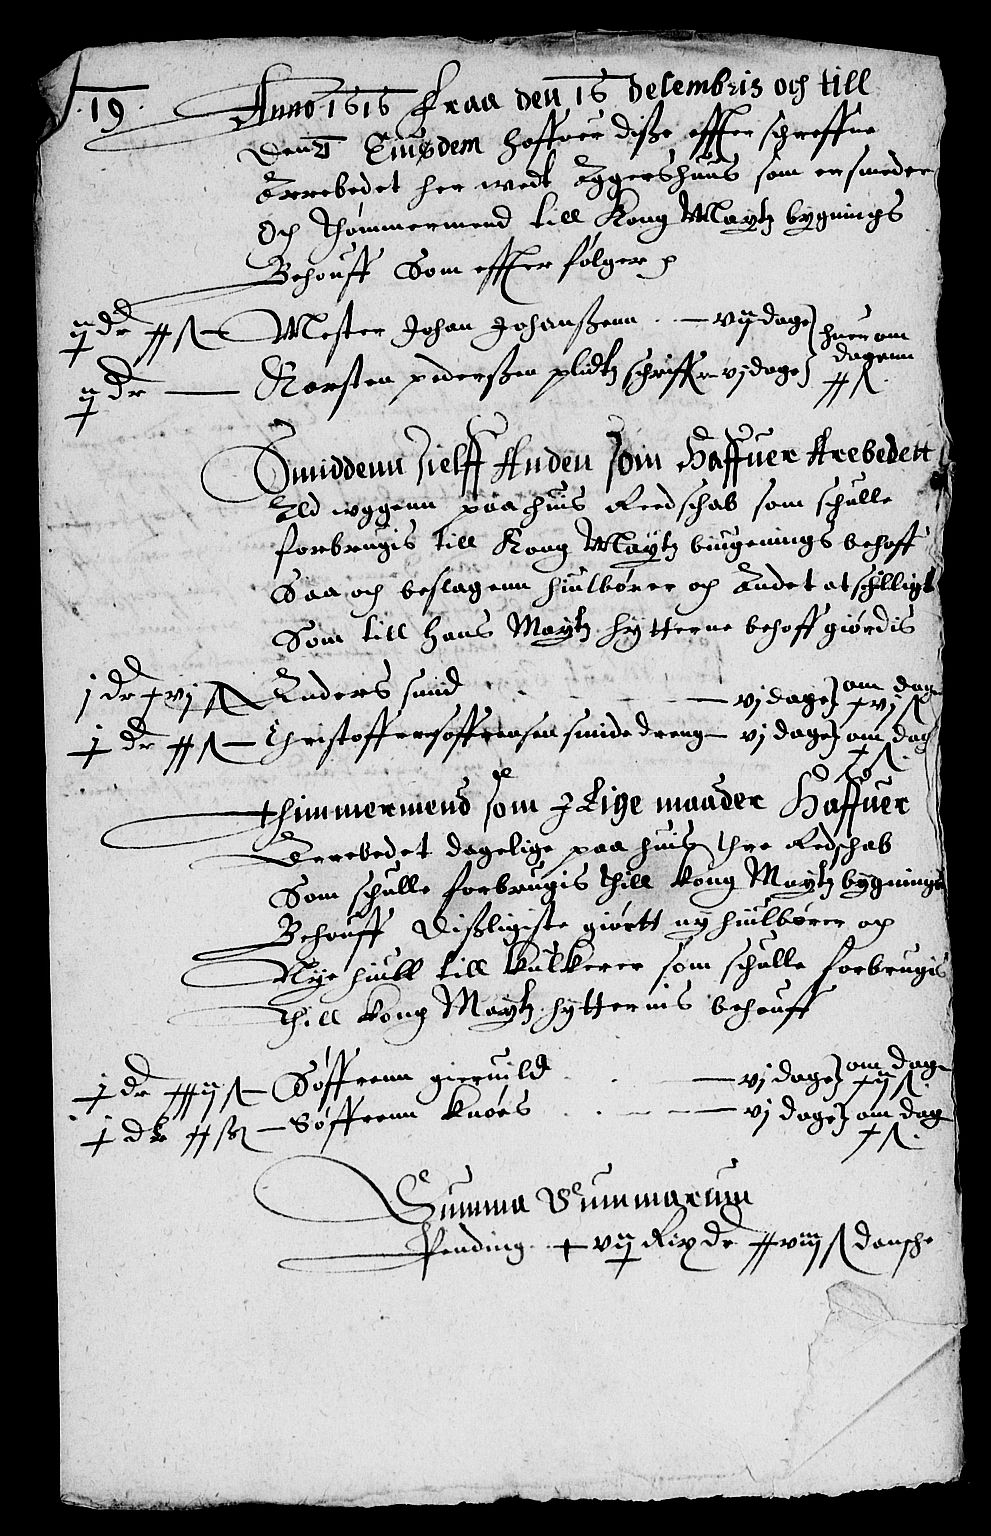 19.
Anno 1616 Fraa den 16 Decembris och till
Den Eiusdem hoffuer diße effter schreffne
Arrebedet her wedt Aggershuus som er smeder
Och Thømmermend till Kong Maytz bygnings
Behouff Som effter følger
Mester Johan Johanßenn vij dage huer om
Karsten pederßen plidtz schriffr vj dage dagenn
Smiddenn sielff Anden som Haffuer Arebedett
Ald wggenn paa huis Reedschab som schulle
forbrugis till Kong Maytz biugenings behoff
Saa och beslagenn hiulbører och Andet atschilligt
Som till Hans Maytz hytterne behoff giørdis
Anders smid vj dage om dag
Christoffer soffrensen smide dreng vj dage om dag
Thimmermend som J Lige maader Haffuer
Arrebedet dagelige paa huis thre Redschab
Som schulle forbrugis thill kong Maytz bygnings
Behouff Dißligiste giortt ny hiulbører och
Nye hiull till kulkerer som schulle forbrugis
thill kong Maytz hytternis behouff
j dr Søffrenn gieruild vj dage om dag
j dr Søffrenn knoes vj dage om dag
Summa Summarum
Pending vij Rix dr viij ß dansche